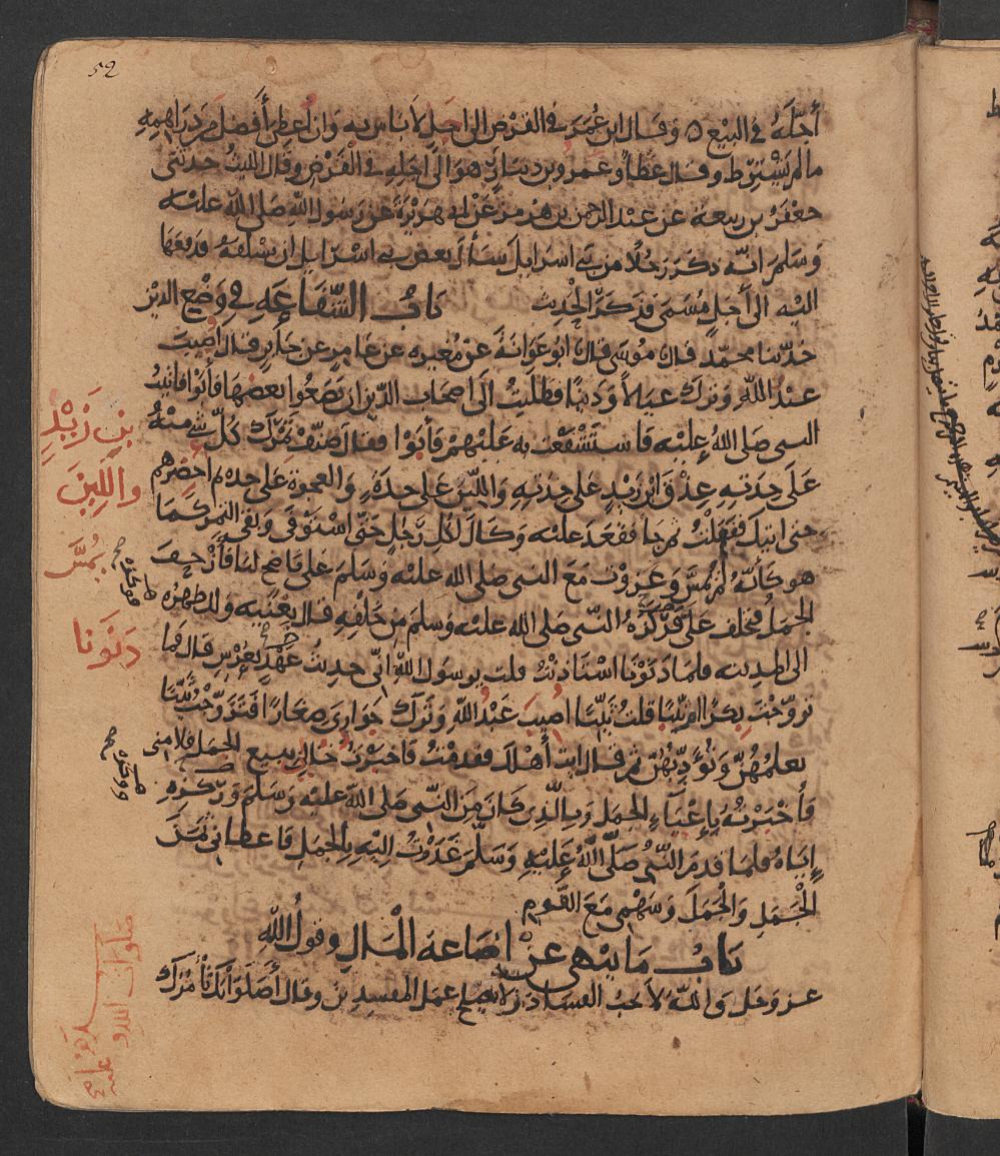 52
أجّله في البيع ٥ وقال ابن عُمَر في القرض الى اجل لا باس به وان أعطي أفضل من دراهمه
مالم يشترط وقال عطاء وعمرو بن دينار هو الى اجله في القرض وقال الليث حدثني
جعفر بن ربيعة عن عبد الرحمن بن هرمز عن ابي هريرة عن رسول الله صلى الله عليه
وسلم انه ذكر رجلا من بني اسرايل سأل بعض بني اسرايل ان يسلفه فدفعها
اليه الى أجل مسمى فذكر الحديث باب الشفاعة في وضع الدين
حدثنا محمد قال موسى قال ابو عوانة عن مغيره عن عامر عن جابر قال أصيب
عبد الله وترك عيالا ودينا فطلبت الى اصحاب الدين ان يضعوا بعضها فأبوا فاتيت
النبي صلى الله عليه فاستشفعت به عليهم فأبوا فقال صنف تمرك كل شي منه
على حدته عذق ابن زيد على حدته واللين على حدة والعجوة على حده ثم احضرهم
حتى اتيك ففعلت ثم جا فقعد عليه وكال لكل رجل حتى استوفى وبقي التمر كما
هو كأنه لم يمس وغزوت مع النبي صلى الله عليه وسلم على ناضح لنا فأزحف
الجمل فتخلف على فوكزه النبي صلى الله عليه وسلم من خلفه قال بعنيه ولك ظهره
الى المدينه فلما دنونا استاذنت قلت يرسول الله اني حديث عهد بعرس قال فما
تزوجت بكرا ام ثيبا قلت ثيبا اصيب عبد الله وترك جواري صغارا فتزوجت ثيبا
تعلمهن وتؤدبهن ثم قال ايت أهلك فقدمت فاخبرت خالي ببيع الجمل فلامني
فأخبرته بإعياء الجمل وبالذي كان من النبي صلى الله عليه وسلم ووكزه
إياه فلما قدم النبي صلى الله عليه وسلم غدوت اليه بالجمل فاعطاني ثمن
الجمل والجمل وسهمي مع القوم
باب ما ينهى عن اضاعة المال وقول الله
عز وجل والله لا يحب الفساد ولا يصلح عمل المفسدين وقال أصلواتك تأمرك
بن زيد
واللين
يمس
فوكزه
دنونا
ووكزه